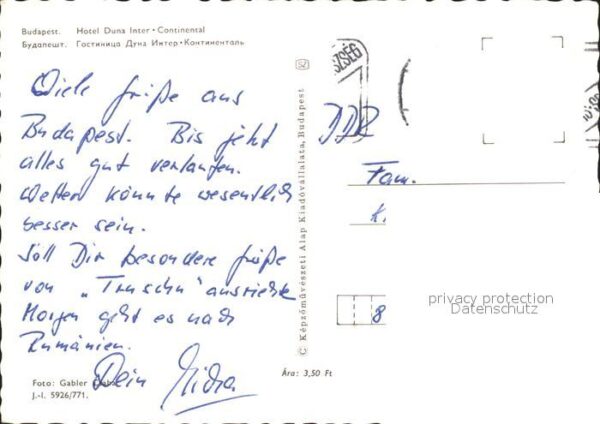 Budapest. Hotel Duna Inter • Continental
Будапешт. Гостиница Дуна Интер • Континенталь
Viele Grüße aus
Budapest. Bis jetzt
alles gut verlaufen.
Wetter könnte wesentlich
besser sein.
Soll Dir besondere Grüße
von „ " ausrichten
Morgen geht es nach
Rumänien.
Dein
Foto: Gabler
J.-I. 5926/771.
© Képzőművészeti Alap Kiadóvállalata, Budapest
Ára: 3,50 Ft
SZSÉG
DDR
Fam.
K.
8
privacy protection
Datenschutz